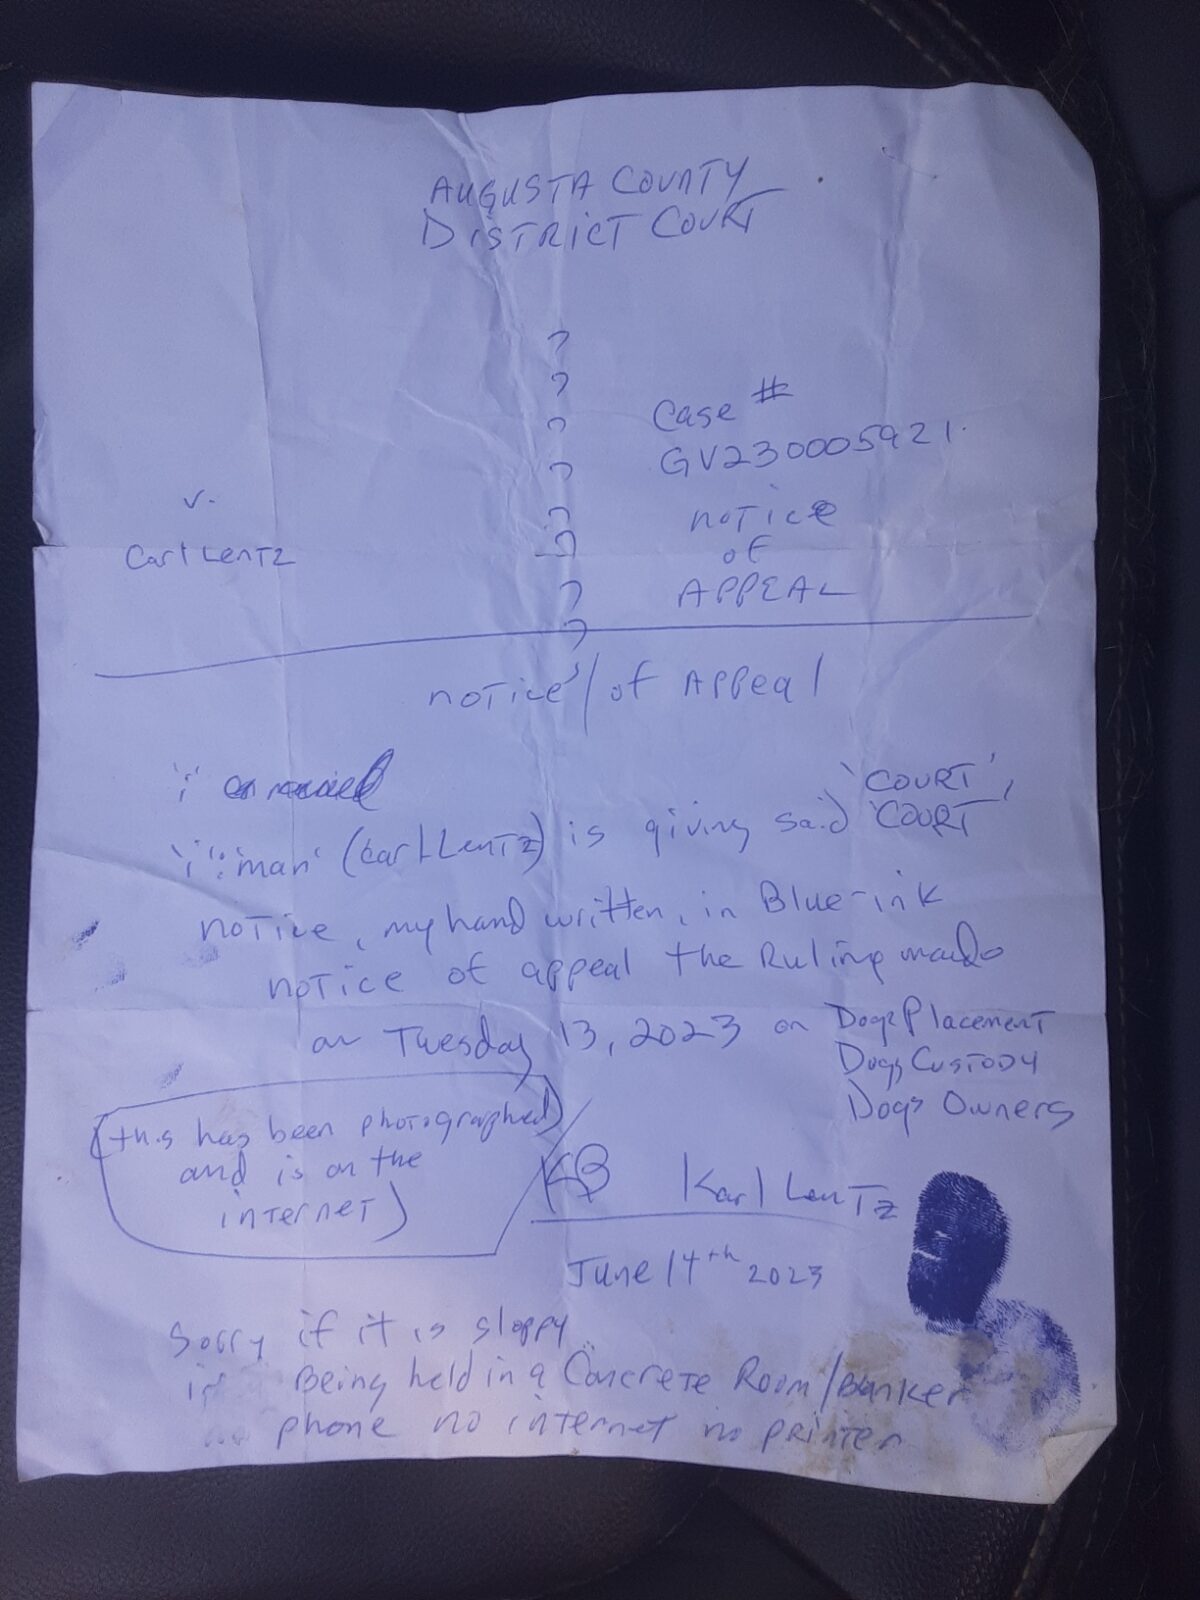 AUGUSTA COUNTY
DISTRICT COURT
Case #
GV230005921.
v.
Carl LenTz
noTice
of
APPEAL
noTice / of APPeal
'i'
'COURT',
'i': man' (Carl LenTz) is giving said 'COURT
noTice, my hand written, in Blue-ink
noTice of appeal the Ruling made
on Tuesday 13, 2023 on Dogs PlacemenT
Dogs CusTODY
Dogs Owners
(this has been photographed)
and is on the
inTerneT)
Karl LenTz
June 14th 2023
Sorry if it is sloppy
Being held in a ConcreTe Room/Bunker
phone no inTernet no prinTer